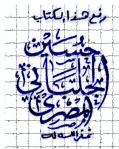 رفع هذا الكتاب
حسين
المصري
غفر الله له